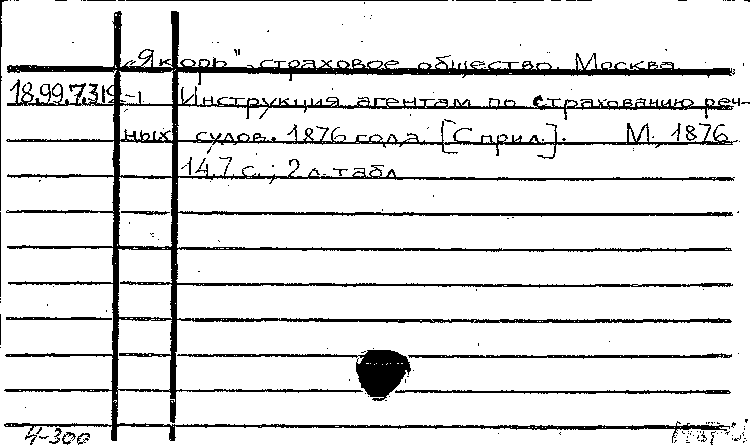 „Якорь" страховое общество. Москва
18.99.7.319-1 Инструкция агентам по страхованию реч-
ных судов. 1876 года. [С прил.]. М., 1876
14,7 с.; 2 л. табл.
4-300